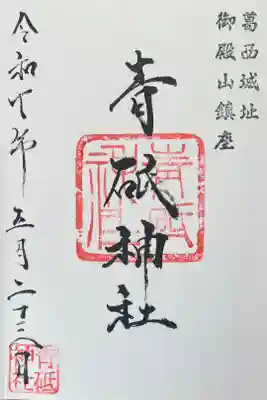 葛西城址
御殿山鎮座
青砥神社
青砥神社
令和年五月二十日
青砥神社